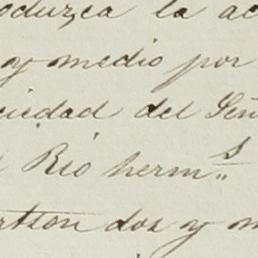 oduzca la ac
y medio por
ciedad del Señ
Rio herm.s
rtson dos y m